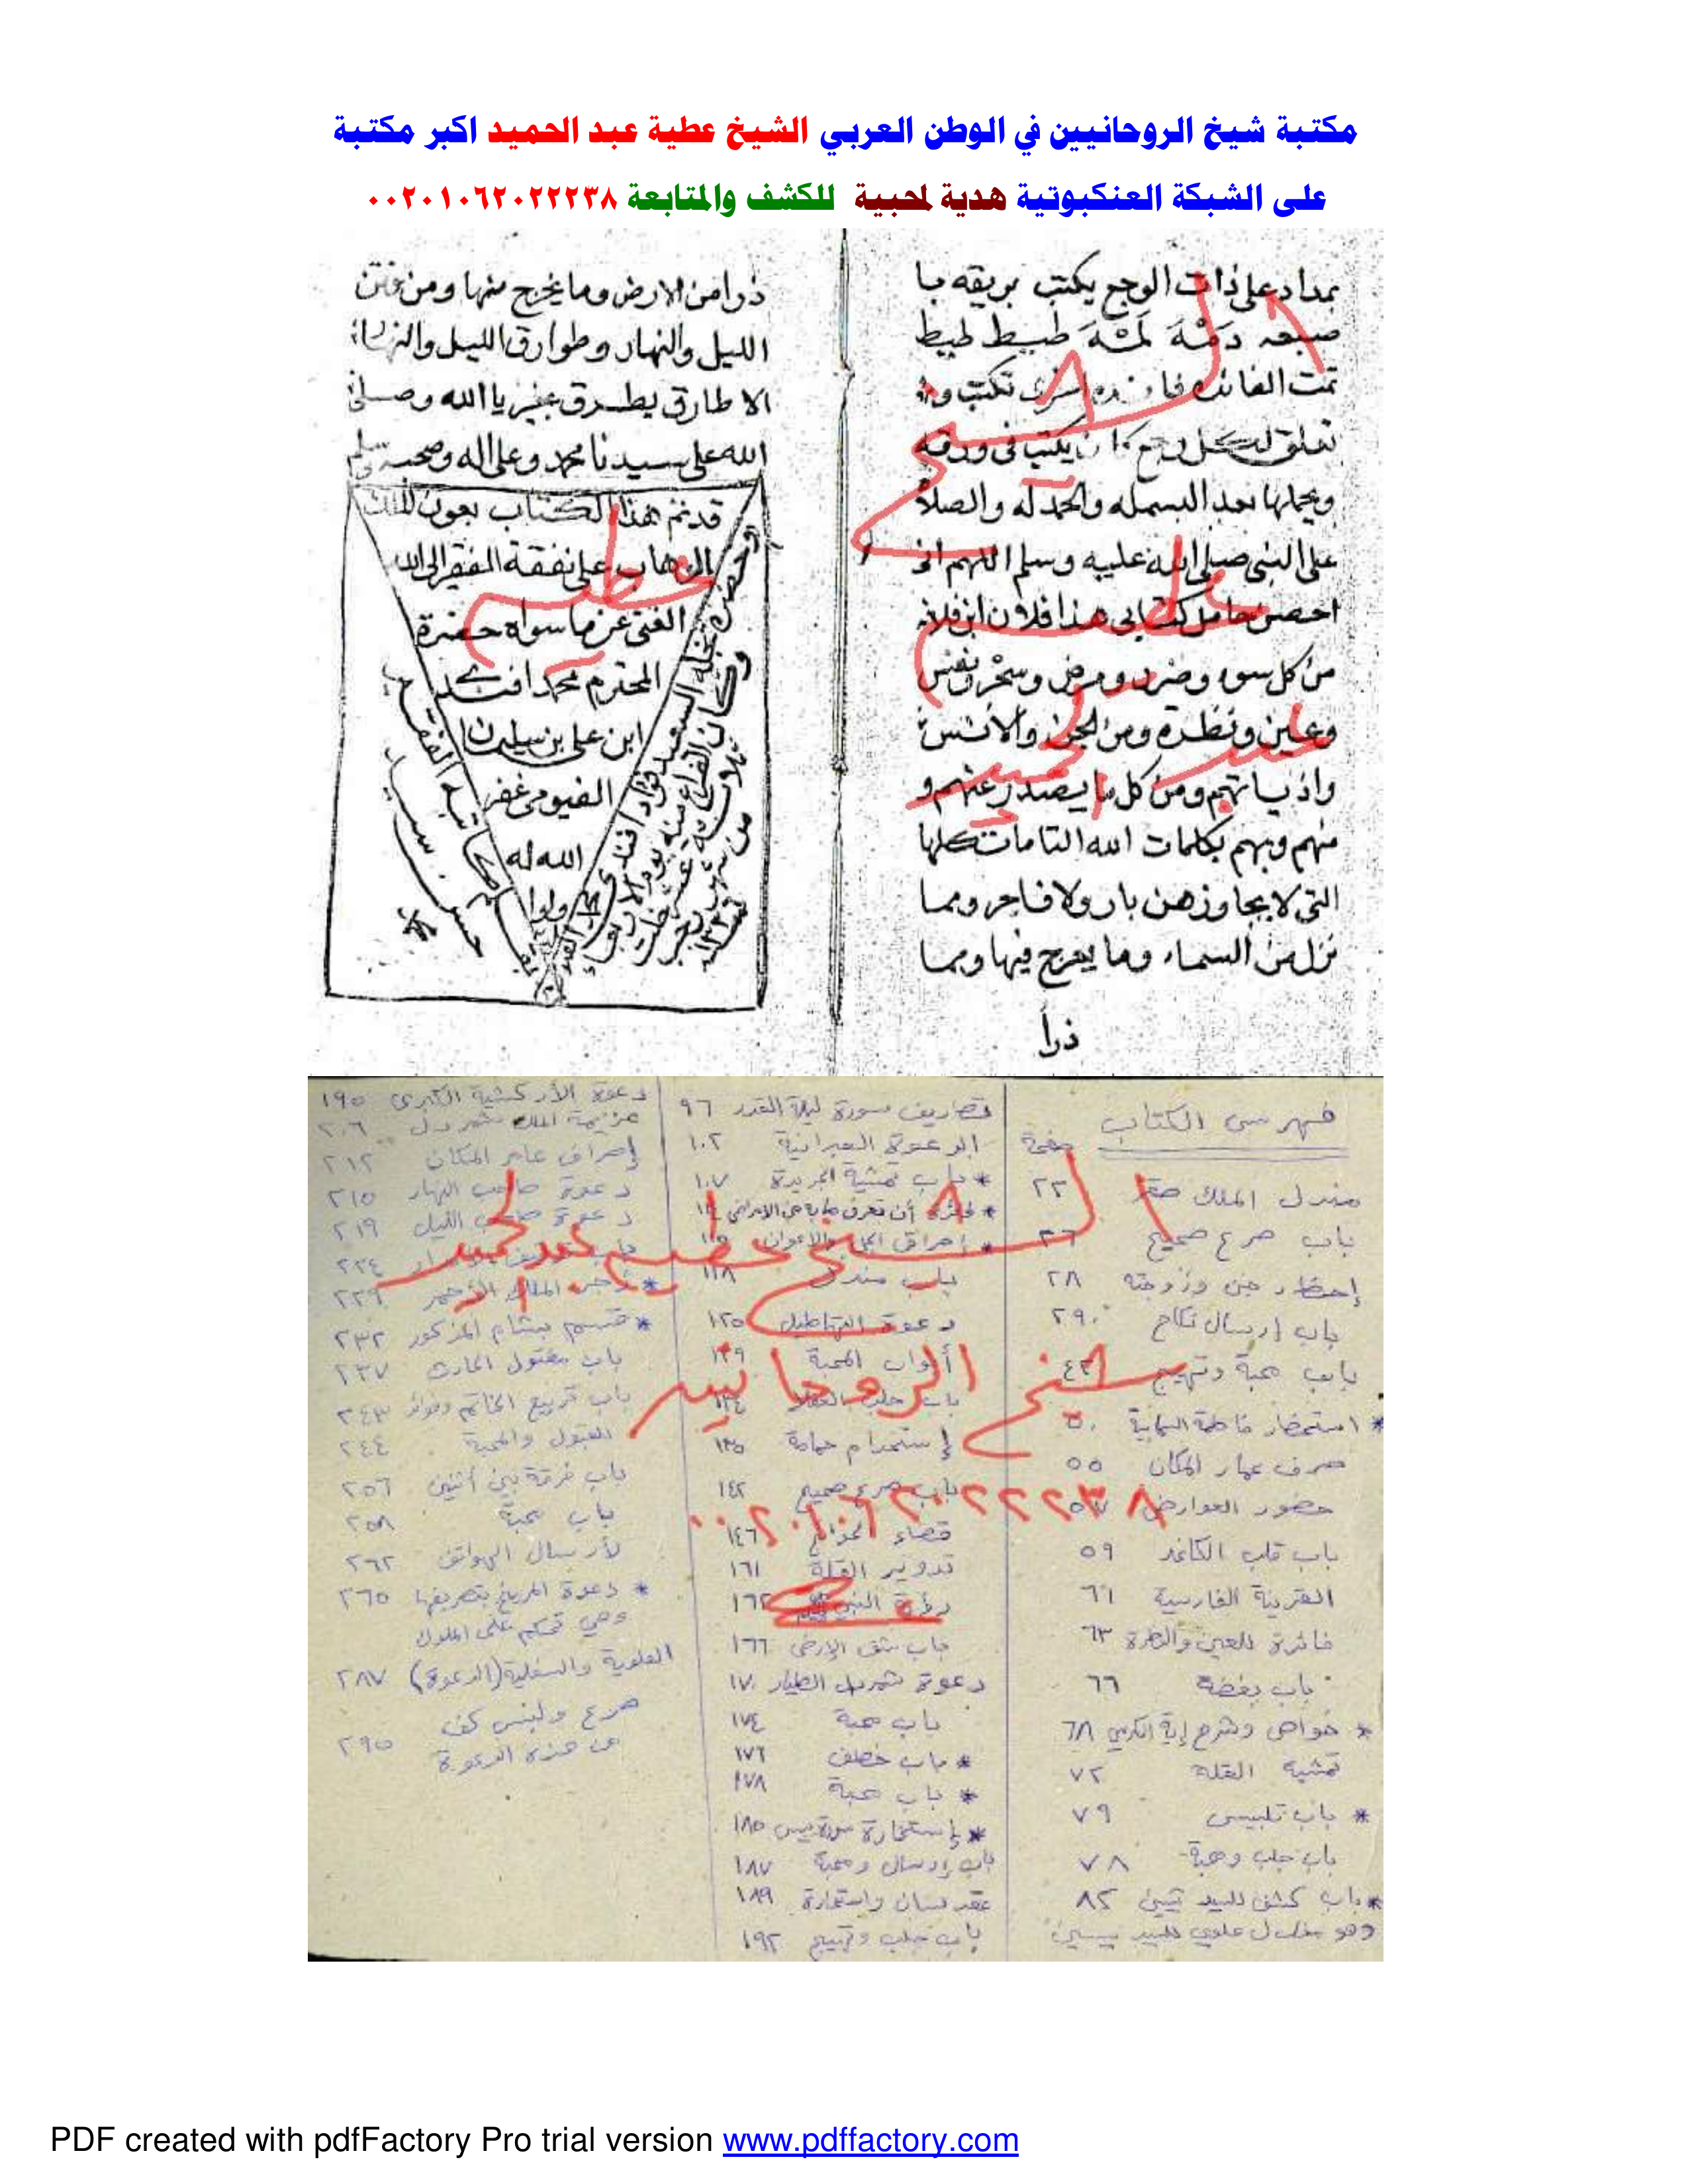 مكتبة شيخ الروحانيين في الوطن العربي الشيخ عطية عبد الحميد اكبر مكتبة
على الشبكة العنكبوتية هدية لمحبية للكشف والمتابعة ٠٠٢٠١٠٦٢٠٢٢٢٣٨
بمداد على ذات الوجع يكتب بريقه با
صبعه طبيط طبيط
تمت الفائده تكتب و
تعلق لكل وجع كان يكتب فى ورقه
ويحملها بعد البسمله والحمدله والصلاة
على النبى صلى الله عليه وسلم اللهم انى
احصن حامل كتابى هذا فلان ابن فلانه
من كل سوء وضرر ومرض وسحر ونفس
وعين ونظرة ومن الجن والانس
واذياتهم ومن كل ما يصدر عنهم و
منهم وبهم بكلمات الله التامات كلها
التى لا يجاوزهن بار ولا فاجر ومما
نزل من السماء وما يعرج فيها ومما
ذرأ
ذرا من الارض وما يخرج منها ومن فتن
الليل والنهار وطوارق الليل والنهار
الا طارق يطرق بخير يا الله وصلى
الله على سيدنا محمد وعلى اله وصحبه وسلم
قد تم هذا الكتاب بعون الملك
الوهاب على نفقة الفقير الى الله
الغنى عن ما سواه حضرة
المحترم محمد افندى
ابن على بن سليمان
الفيومى غفر
الله له
ولوا
فهرس الكتاب
صفحة
مندل الملك صقر ٢٢
باب صرع صحيح ٢٦
إحضار جن وزوجته ٢٨
باب إرسال نكاح ٢٩
باب محبة وتهييج ٤٢
* استحضار فاطمة اليمانية ٥٠
صرف عمار المكان ٥٥
حضور العوارض
باب قلب الكاغد ٥٩
القرينة الفارسية ٦١
فائدة للعين والنظرة ٦٣
باب بغضة ٦٦
* خواص وشرح إية الكرسي ٦٨
تمشية القلة ٧٢
* باب تلبيس ٧٩
باب جلب ومحبة ٧٨
* باب كشف لليد ٨٢
وهو مندل علوي لليد
تصاريف سورة ليلة القدر ٩٦
الدعوة العبرانية ١٠٢
* باب تمشية الجريدة ١٠٧
باب مندل ١١٨
دعوة ١٢٥
أبواب المحبة ١٢٩
باب جلب
إستخدام حمامة ١٣٥
باب صرع صحيح ١٤٢
قضاء الحوائج ١٤٦
تدوير القلة ١٦١
رؤية النبي ١٦٢
باب شق الارض ١٦٦
دعوة شمردل الطيار ١٧٠
باب محبة ١٧٤
* باب خطف ١٧٦
* باب محبة ١٧٨
* إستخارة سورة يس ١٨٥
باب إرسال ومحبة ١٨٧
عقد لسان واستخارة ١٨٩
باب جلب وتهييج ١٩٢
دعوة الأركشية الكبرى ١٩٥
عزيمة الملك شمردل ٢٠٦
إحراق عامر المكان ٢١٢
دعوة صاحب النهار ٢١٥
دعوة صاحب الليل ٢١٩
٢٢٤
* الملك الأحمر ٢٢٩
* قسم المذكور ٢٣٢
باب ٢٣٧
باب تربيع الخاتم وفوائد ٢٤٣
للقبول والمحبة ٢٤٤
باب فرقة بين أثنين ٢٥٦
باب محبة ٢٥٨
لأرسال الهواتف ٢٦٢
* دعوة المريخ بتصريفها ٢٦٥
وهي تحكم على الملوك
العلوية والسفلية (الدعوة) ٢٨٧
صرع ولبس كف
من هذه الدعوة ٢٩٥
الشيخ عطيه عبد الحميد
الشيخ عطيه عبد الحميد
شيخ الروحانيين
٠٠٢٠١٠٦٢٠٢٢٢٣٨
PDF created with pdfFactory Pro trial version www.pdffactory.com